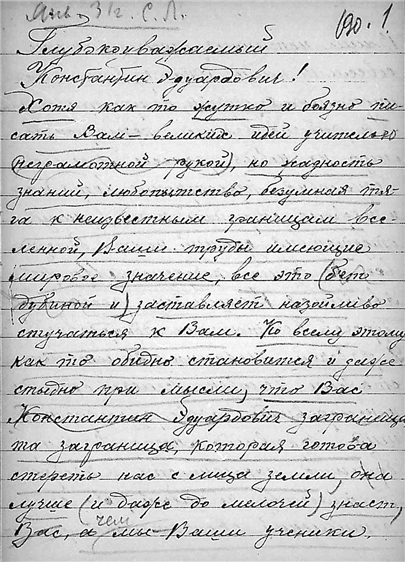 Янв. 31 г. С. Л.
190. 1
Глубокоуважаемый
Константин Эдуардович!
Хотя как то жутко и боязно пи-
сать Вам – великих идей учителю
(неграмотной рукой), но жадность
знаний, любопытство, безумная тя-
га к неизвестным границам все
ленной, Ваши труды имеющие
мировое значение, все это (бет
дубиной и) заставляет назойливо
стучаться к Вам. Ко всему этому
как то обидно становится и даже
стыдно при мысли, что Вас
Константин Эдуардович заграница
та заграница, которая готова
стереть нас с лица земли, она
лучше (и даже до мелочей) знает,
Вас, а чем мы Ваши ученики.